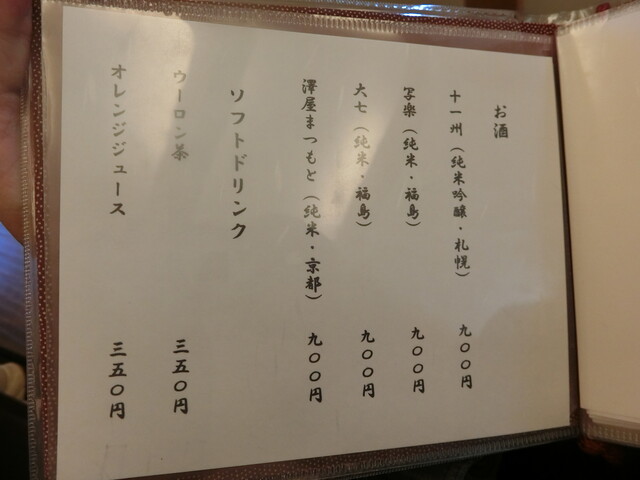 お酒
十一州(純米吟醸・札幌) 九〇〇円
写楽(純米・福島) 九〇〇円
大七(純米・福島) 九〇〇円
澤屋まつもと(純米・京都) 九〇〇円
ソフトドリンク
ウーロン茶 三五〇円
オレンジジュース 三五〇円